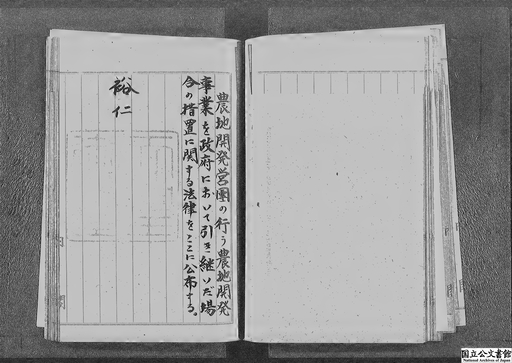 農地開発営団の行う農地開発
事業を政府において引き継いだ場
合の措置に関する法律をここに公布する。
裕仁
国立公文書館
National Archives of Japan